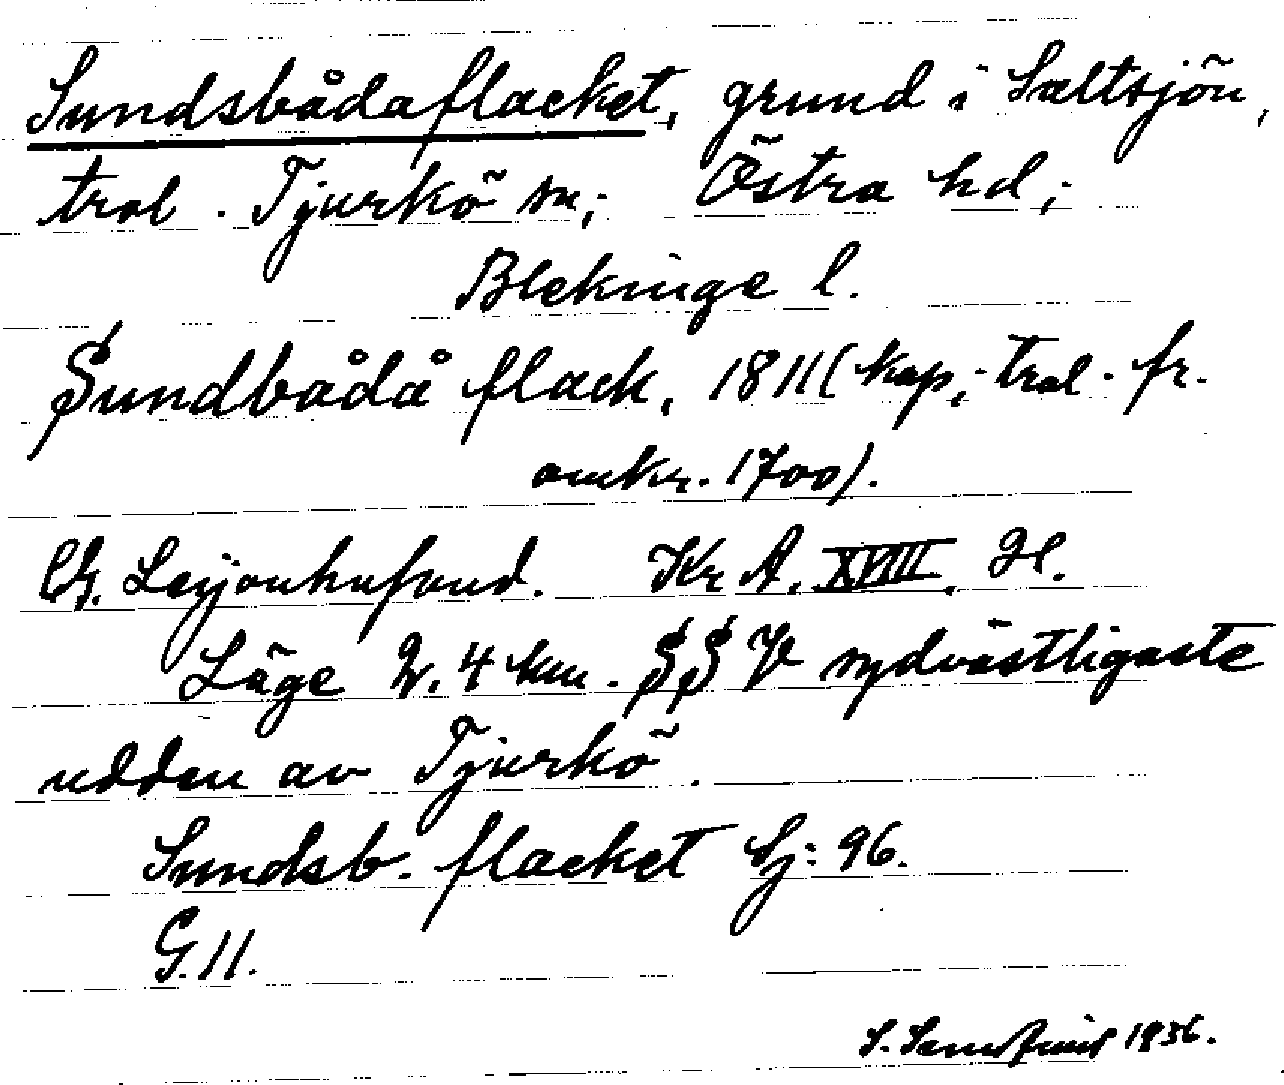 Sundsbådaflacket, grund i Saltsjön,
trol. Tjurkö sn; Östra hd;
Blekinge l.
Sundbådå flack, 1811 (kop, trol. fr.
omkr. 1700).
Leijonhufvud. Kr A. XVIII. H.
Läge 2,4 km. SSV sydvästligaste
udden av Tjurkö.
Sundsb. flacket Sj: 96.
G. 11.
S. 1936.